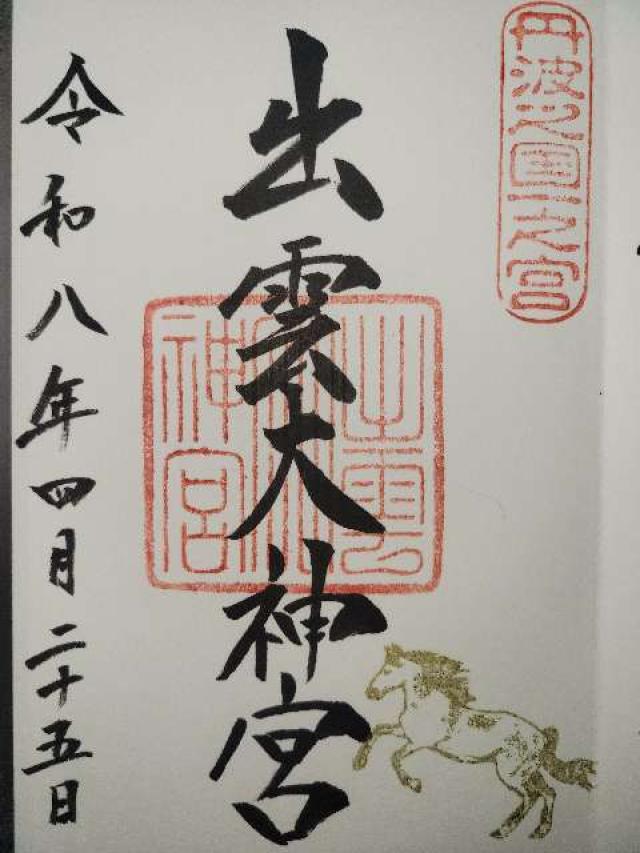 丹波之国一之宮
出雲大神宮
出雲大神宮
令和八年四月二十五日